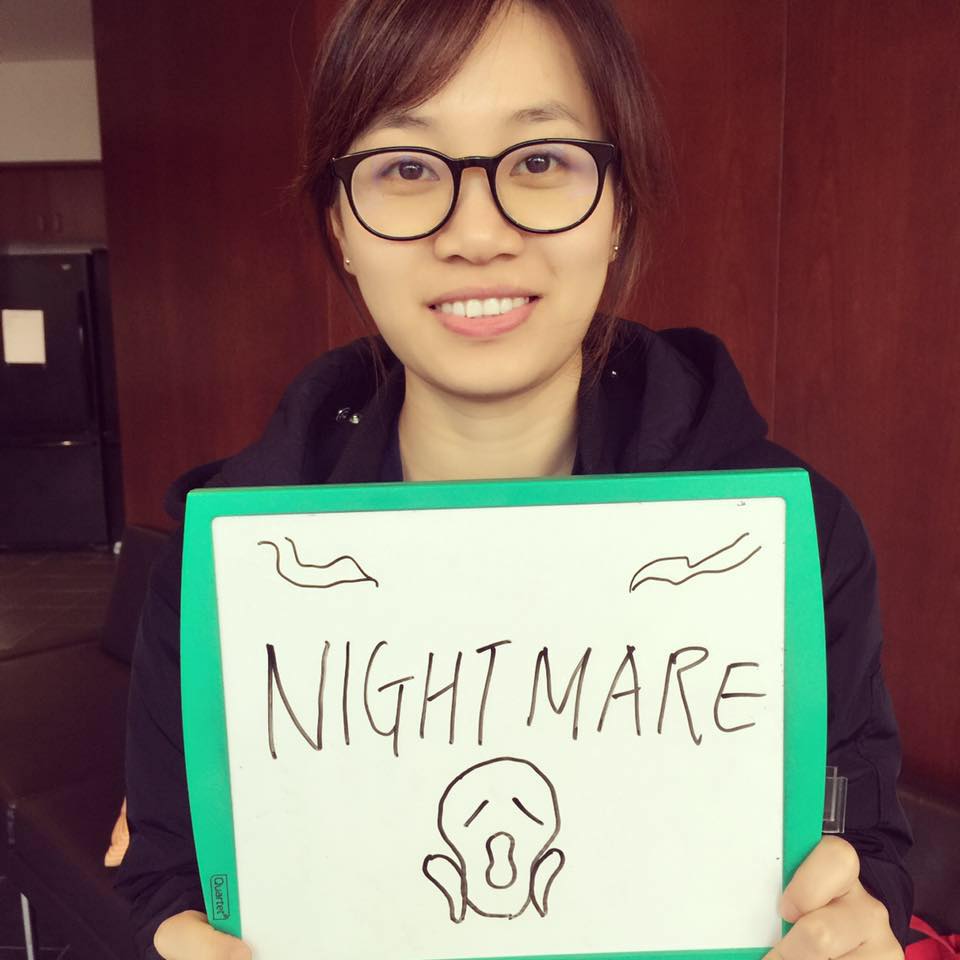 NIGHTMARE
Quartet